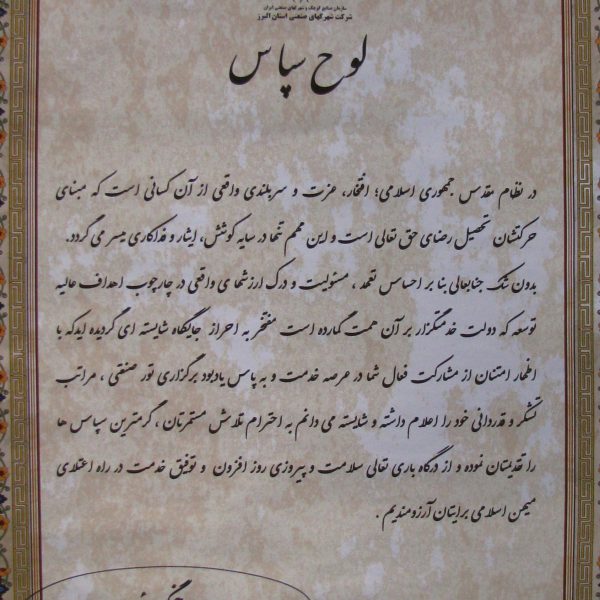 سازمان صنایع کوچک و شهرکهای صنعتی ایران
شرکت شهرکهای صنعتی استان البرز
لوح سپاس
در نظام مقدس جمهوری اسلامی؛ افتخار، عزت و سربلندی واقعی از آن کسانی است که مبنای
حرکتشان تحصیل رضای حق تعالی است و این مهم تنها در سایه کوشش، ایثار و فداکاری میسر می گردد.
بدون شک جنابعالی بنا بر احساس تعهد، مسئولیت و درک ارزشهای واقعی در چارچوب اهداف عالیه
توسعه که دولت خدمتگزار بر آن همت گمارده است مفتخر به احراز جایگاه شایسته ای گردیده ایدکه با
اظهار امتنان از مشارکت فعال شما در عرصه خدمت و به پاس یادبود برگزاری تور صنعتی، مراتب
تشکر و قدردانی خود را اعلام داشته و شایسته می دانم به احترام تلاش مستمرتان، گرمترین سپاس ها
را تقدیمتان نموده و از درگاه باری تعالی سلامت و پیروزی روز افزون و توفیق خدمت در راه اعتلای
میهن اسلامی برایتان آرزومندیم.